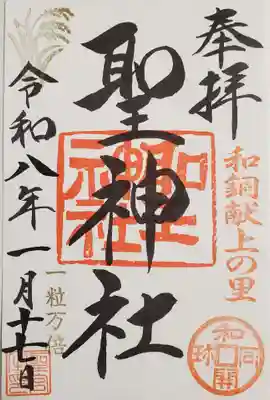 奉拝
和銅献上の里
和同開珎
聖神社
聖神社
一粒万倍
令和八年一月十七日